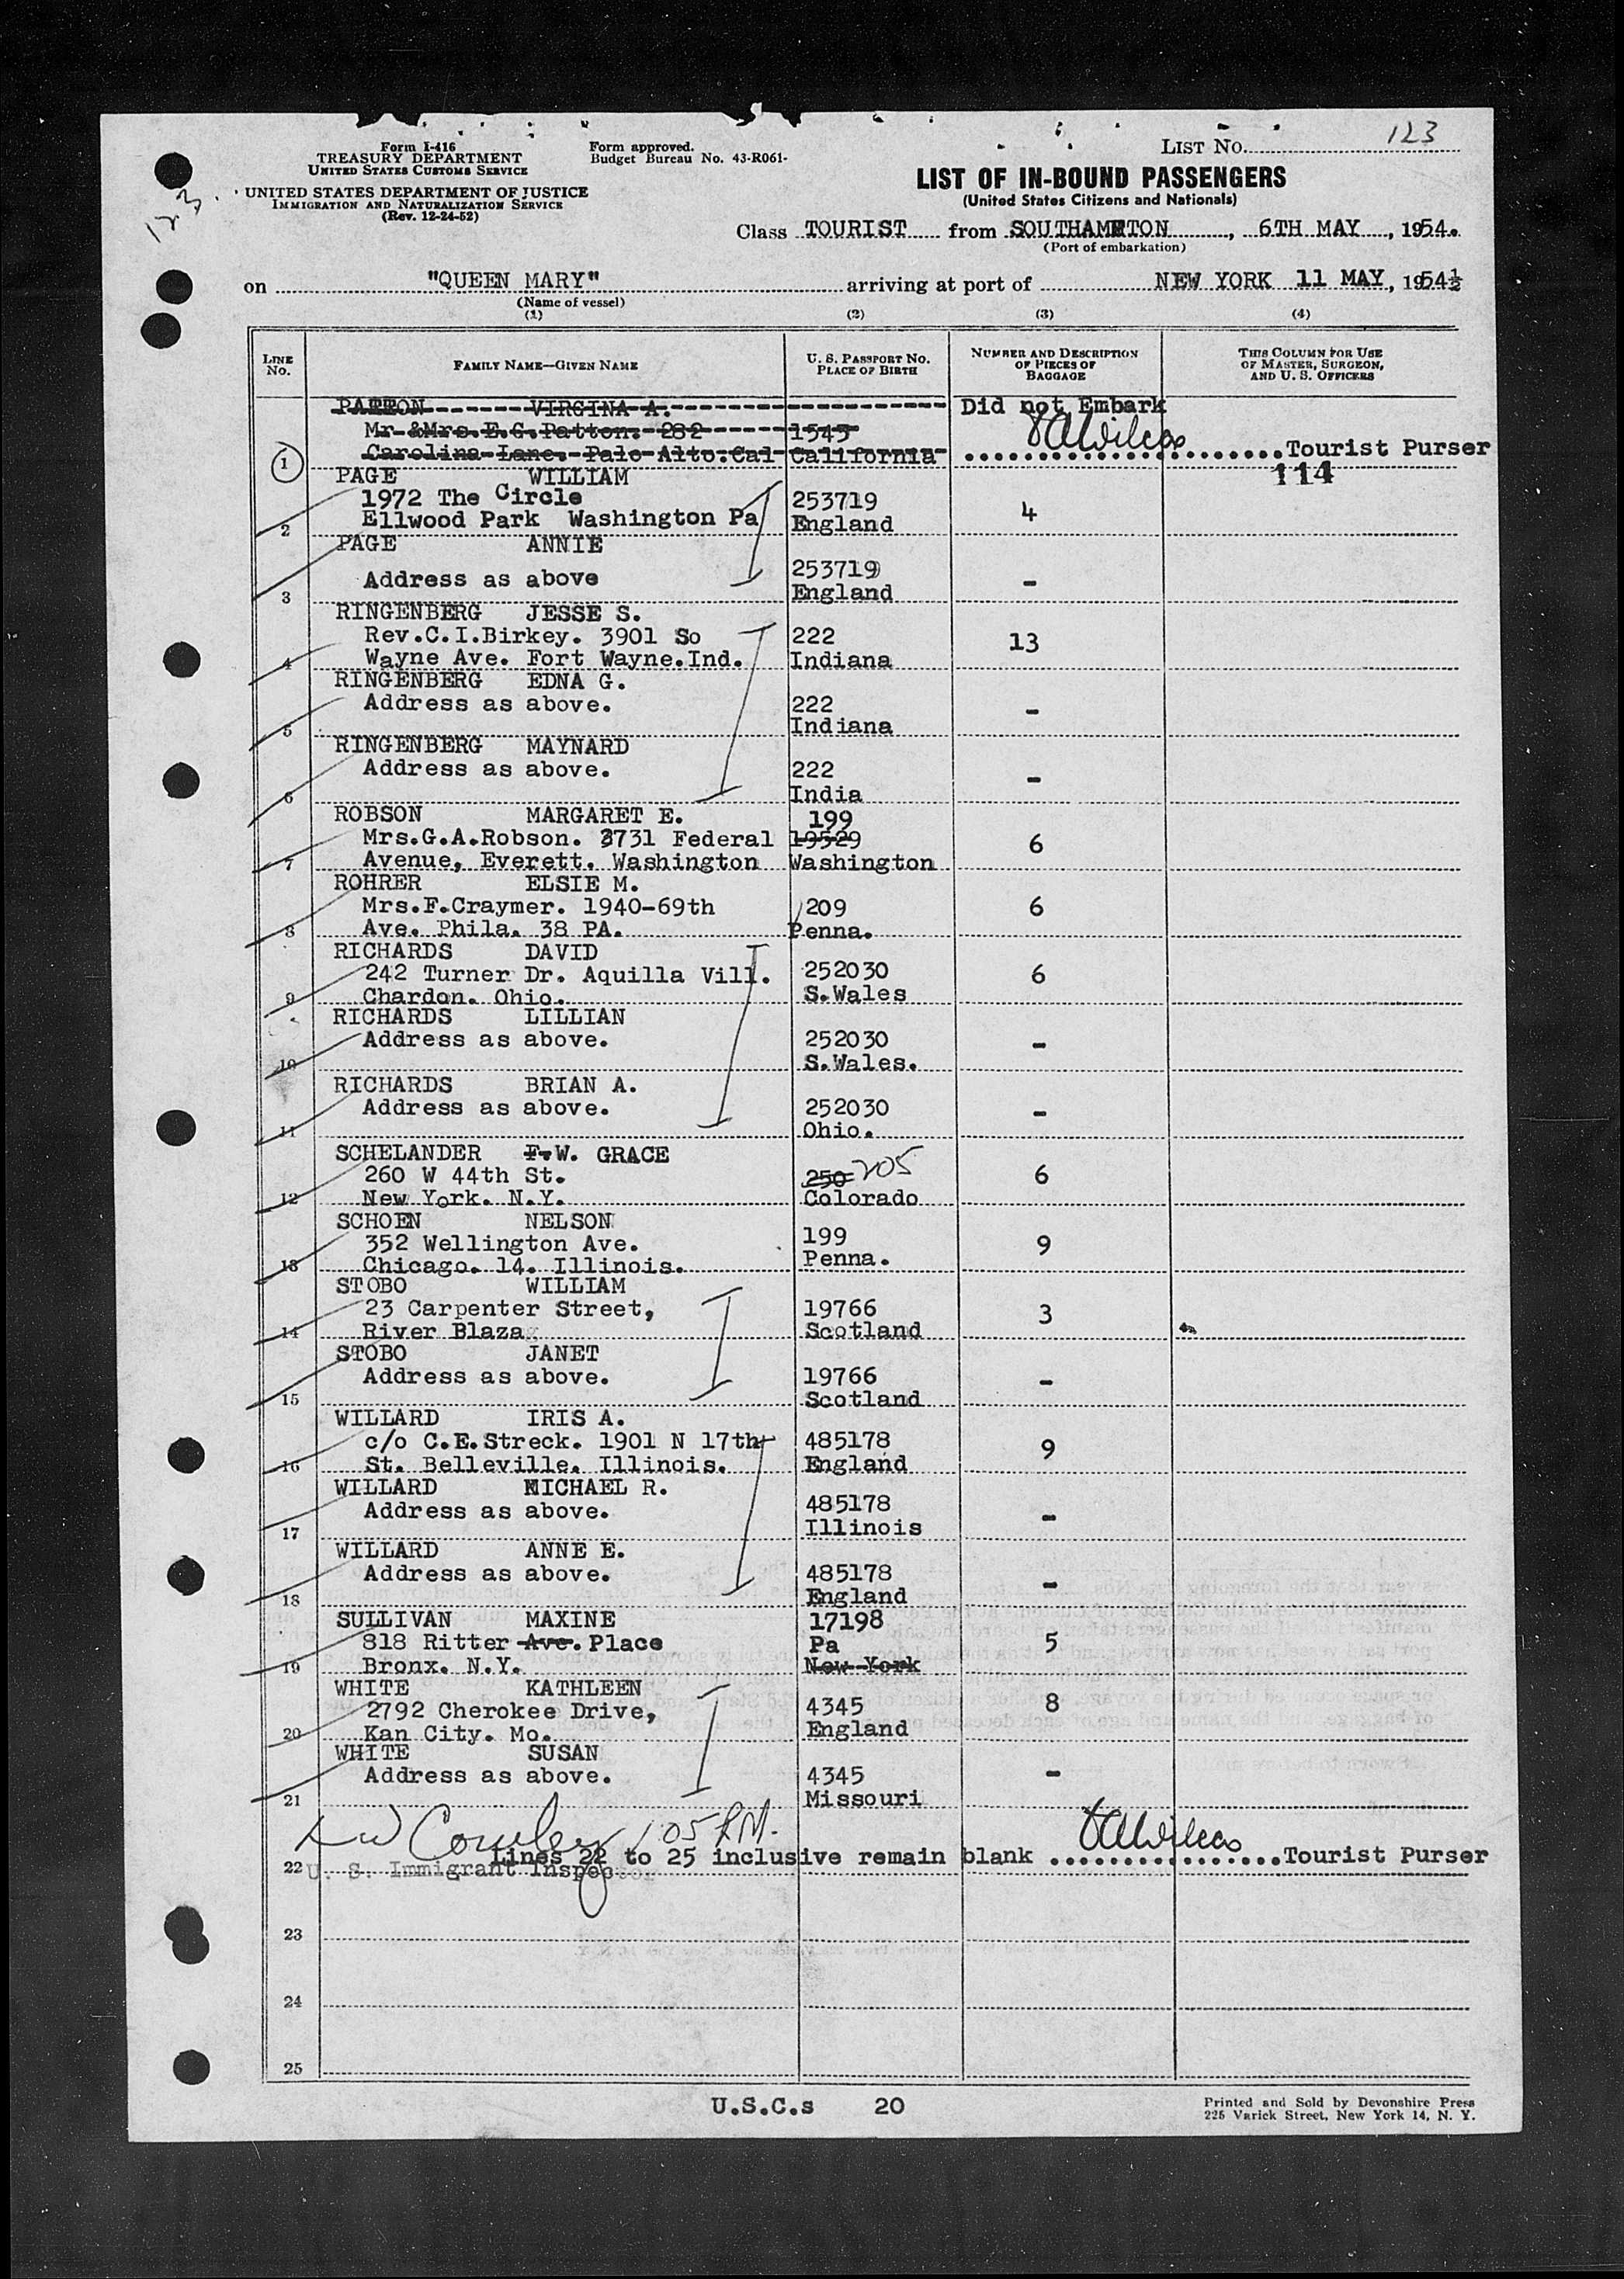 123
Form I-416
TREASURY DEPARTMENT
UNITED STATES CUSTOMS SERVICE
UNITED STATES DEPARTMENT OF JUSTICE
IMMIGRATION AND NATURALIZATION SERVICE
(Rev. 12-24-52)
Form approved.
Budget Bureau No. 43-R061-
LIST NO. 123
LIST OF IN-BOUND PASSENGERS
(United States Citizens and Nationals)
Class TOURIST from SOUTHAMPTON, 6TH MAY, 1954.
(Port of embarkation)
on "QUEEN MARY" arriving at port of NEW YORK 11 MAY, 1954½
(Name of vessel)
(1) (2) (3) (4)
LINE NO. FAMILY NAME—GIVEN NAME U. S. PASSPORT NO. PLACE OF BIRTH NUMBER AND DESCRIPTION OF PIECES OF BAGGAGE THIS COLUMN FOR USE OF MASTER, SURGEON, AND U. S. OFFICERS
PATTON VIRGINA A. Did not Embark
Mr &Mrs.E.G.Patton. 282 1545
1 Carolina Lane. Palo Alto.Cal California Tourist Purser
PAGE WILLIAM 114
1972 The Circle 253719 4
2 Ellwood Park Washington Pa England
PAGE ANNIE
Address as above 253719 -
3 England
RINGENBERG JESSE S.
Rev.C.I.Birkey. 3901 So 222 13
4 Wayne Ave. Fort Wayne.Ind. Indiana
RINGENBERG EDNA G.
Address as above. 222 -
5 Indiana
RINGENBERG MAYNARD
Address as above. 222 -
6 India
ROBSON MARGARET E. 199
Mrs.G.A.Robson. 3731 Federal 19529 6
7 Avenue, Everett. Washington Washington
ROHRER ELSIE M.
Mrs.F.Craymer. 1940-69th 209 6
8 Ave. Phila. 38 PA. Penna.
RICHARDS DAVID
242 Turner Dr. Aquilla Vill. 252030 6
9 Chardon. Ohio. S.Wales
RICHARDS LILLIAN
Address as above. 252030 -
10 S.Wales.
RICHARDS BRIAN A.
Address as above. 252030 -
11 Ohio.
SCHELANDER F.W. GRACE
260 W 44th St. 250 205 6
12 New York. N.Y. Colorado
SCHOEN NELSON
352 Wellington Ave. 199 9
13 Chicago. 14. Illinois. Penna.
STOBO WILLIAM
23 Carpenter Street, 19766 3
14 River Blaza Scotland
STOBO JANET
Address as above. 19766 -
15 Scotland
WILLARD IRIS A.
c/o C.E.Streck. 1901 N 17th 485178 9
16 St. Belleville. Illinois. England
WILLARD MICHAEL R.
Address as above. 485178 -
17 Illinois
WILLARD ANNE E.
Address as above. 485178 -
18 England
SULLIVAN MAXINE 17198
818 Ritter Ave. Place Pa 5
19 Bronx. N.Y. New York
WHITE KATHLEEN
2792 Cherokee Drive, 4345 8
20 Kan City. Mo. England
WHITE SUSAN
Address as above. 4345 -
21 Missouri
1 05 P.M.
Lines 22 to 25 inclusive remain blank Tourist Purser
22 U. S. Immigrant Inspector
23
24
25
U.S.C.s 20
Printed and Sold by Devonshire Press
225 Varick Street, New York 14, N. Y.